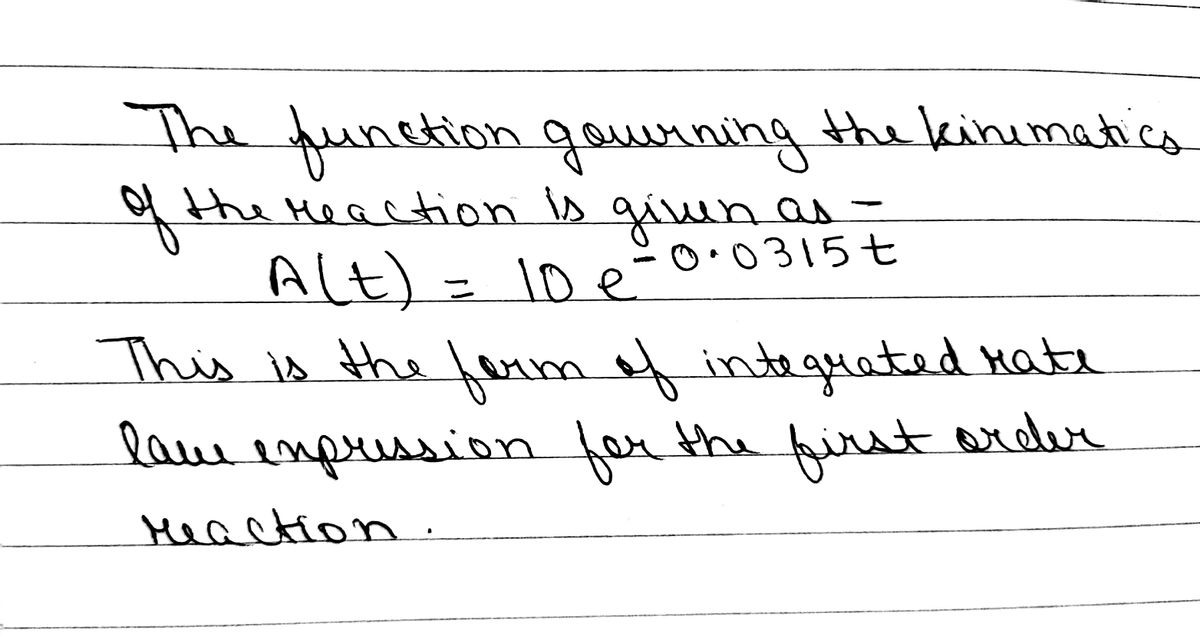 The function governing the kinematics
of the reaction is given as -
A(t) = 10 e^-0.0315t
This is the form of integrated rate
law expression for the first order
reaction.